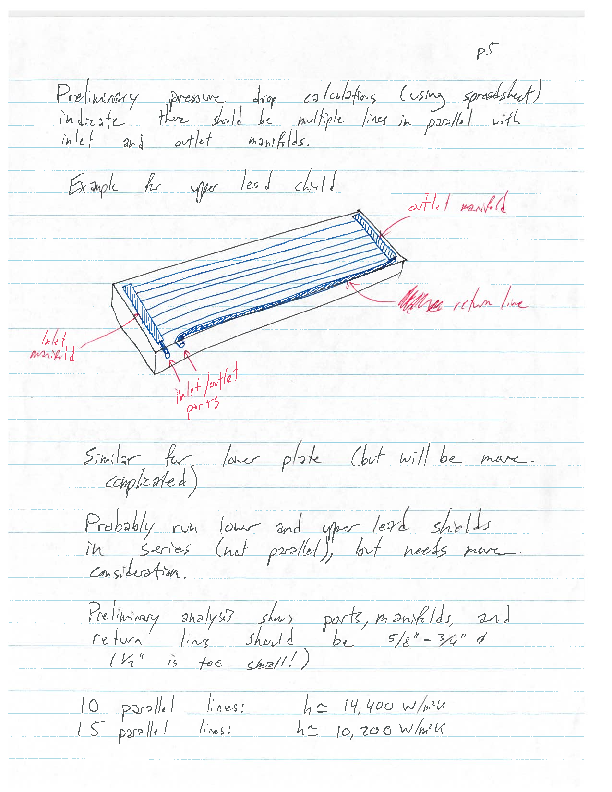 p.5
Preliminary pressure drop calculations (using spreadsheet)
indicate there should be multiple lines in parallel with
inlet and outlet manifolds.
Example for upper lead shield
outlet manifold
return line
inlet
manifold
inlet/outlet
ports
Similar for lower plate (but will be more
complicated)
Probably run lower and upper lead shields
in series (not parallel), but needs more
consideration.
Preliminary analysis shows ports, manifolds, and
return lines should be 5/8" - 3/4" ∅
(1/2" is too small!)
10 parallel lines: h ≃ 14,400 W/m²K
15 parallel lines: h ≃ 10,200 W/m²K